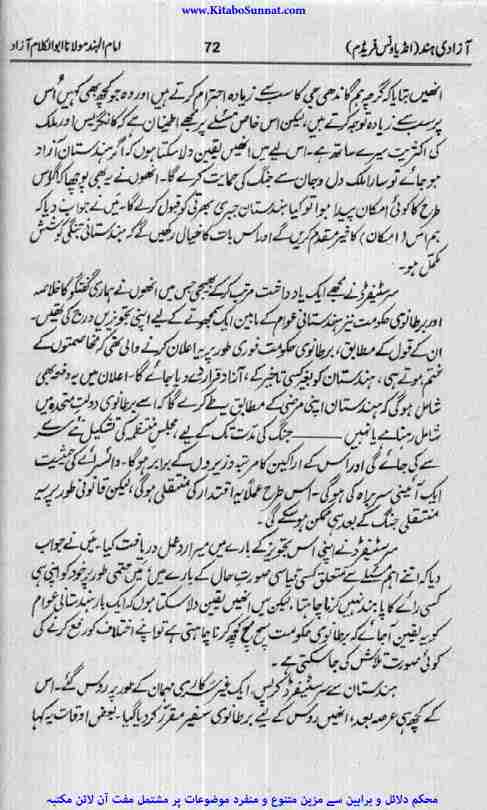 www.KitaboSunnat.com
آزادی ہند (انڈیا ونس فریڈم) 72 امام الہند مولانا ابوالکلام آزاد
انھیں بتایا کہ گرچہ ہم گاندھی جی کا سب سے زیادہ احترام کرتے ہیں اور وہ جو کچھ بھی کہیں اُس
پر سب سے زیادہ توجہ کرتے ہیں، لیکن اس خاص مسئلے پر مجھے اطمینان ہے کہ کانگریس اور ملک
کی اکثریت میرے ساتھ ہے۔ اس لیے میں انھیں یقین دلا سکتا ہوں کہ اگر ہندستان آزاد
ہو جائے تو سارا ملک دل و جان سے جنگ کی حمایت کرے گا۔ انھوں نے یہ بھی پوچھا کہ اگر اس
طرح کا کوئی امکان پیدا ہوا تو کیا ہندستان جبری بھرتی کو قبول کرے گا۔ میں نے جواب دیا کہ
ہم اس (امکان) کا خیر مقدم کریں گے اور اس بات کا خیال رکھیں گے کہ ہندستانی جنگی کوشش
مکمل ہو۔
سر سٹیفرڈ نے مجھے ایک یادداشت مرتب کر کے بھیجی جس میں انھوں نے ہماری گفتگو کا خلاصہ
اور برطانوی حکومت نیز ہندستانی عوام کے مابین ایک سمجھوتے کے لیے اپنی تجویزیں درج کی تھیں۔
ان کے قول کے مطابق، برطانوی حکومت فوری طور پر یہ اعلان کرنے والی تھی کہ مخاصمتوں کے
ختم ہوتے ہی، ہندستان کو بغیر کسی تاخیر کے، آزاد قرار دے دیا جائے گا۔ اعلان میں یہ دفعہ بھی
شامل ہوگی کہ ہندستان اپنی مرضی کے مطابق طے کرے گا کہ اسے برطانوی دولتِ متحدہ میں
شامل رہنا ہے یا نہیں ــــــــ جنگ کی مدت تک کے لیے، مجلسِ منتظمہ کی تشکیل نئے سرے
سے کی جائے گی اور اس کے اراکین کا مرتبہ وزیروں کے برابر ہوگا۔ وائسرائے کی حیثیت
ایک آئینی سربراہ کی ہوگی۔ اس طرح عملاً یہ اقتدار کی منتقلی ہوگی، لیکن قانونی طور پر یہ
منتقلی جنگ کے بعد ہی ممکن ہو سکے گی۔
سر سٹیفرڈ نے اپنی اس تجویز کے بارے میں میرا ردِ عمل دریافت کیا۔ میں نے جواب
دیا کہ اتنے اہم مسئلے سے متعلق کسی قیاسی صورتِ حال کے بارے میں، میں حتمی طور پر خود کو اپنی ہی
کسی رائے کا پابند نہیں کرنا چاہتا، لیکن میں انھیں یقین دلا سکتا ہوں کہ ایک بار ہندستانی عوام
کو یہ یقین آ جائے کہ برطانوی حکومت سچ مچ کچھ کرنا چاہتی ہے تو اپنے اختلاف کو رفع کرنے کی
کوئی صورت تلاش کی جا سکتی ہے۔
ہندستان سے سر سٹیفرڈ کرپس، ایک غیر سرکاری مہمان کے طور پر روس گئے۔ اس
کے کچھ ہی عرصہ بعد، انھیں روس کے لیے برطانوی سفیر مقرر کر دیا گیا۔ بعض اوقات یہ کہا
محکم دلائل و براہین سے مزین متنوع و منفرد موضوعات پر مشتمل مفت آن لائن مکتبہ